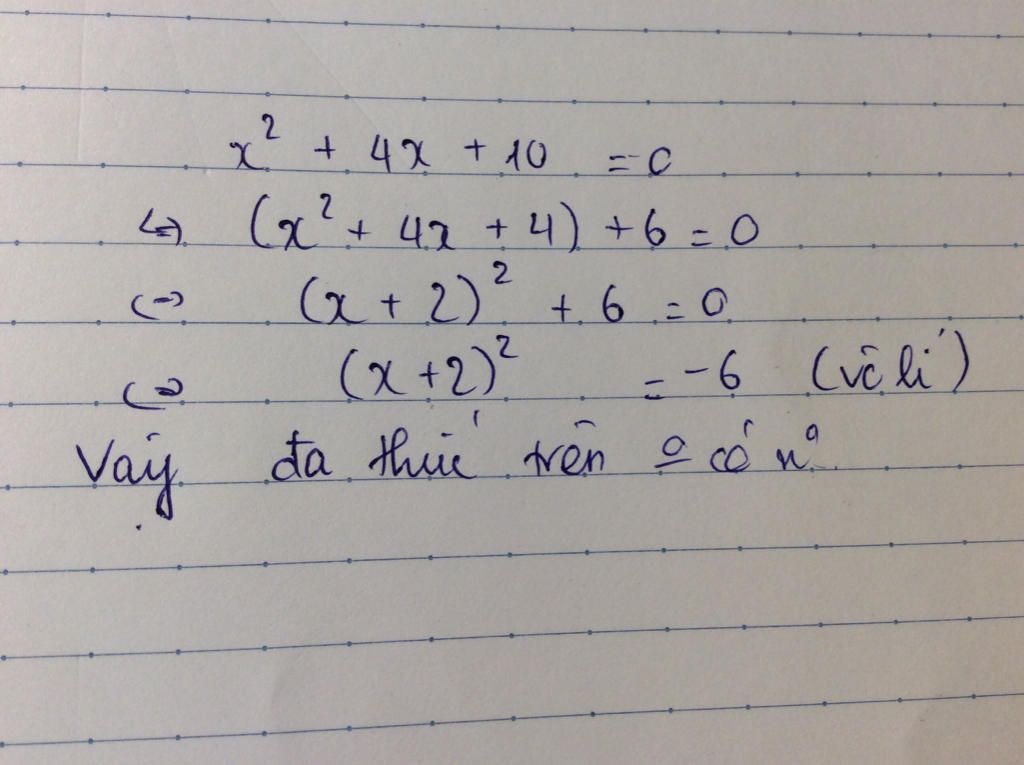 x² + 4x + 10 = 0
⇔ (x² + 4x + 4) + 6 = 0
⇔ (x + 2)² + 6 = 0
⇔ (x + 2)² = -6 (vô lí)
Vậy đa thức trên o có nº